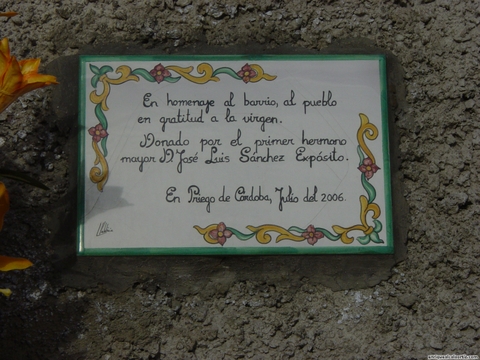 En homenaje al barrio, al pueblo
en gratitud a la virgen.
Donado por el primer hermano
mayor D. José Luis Sánchez Expósito.
En Priego de Córdoba, Julio del 2006.